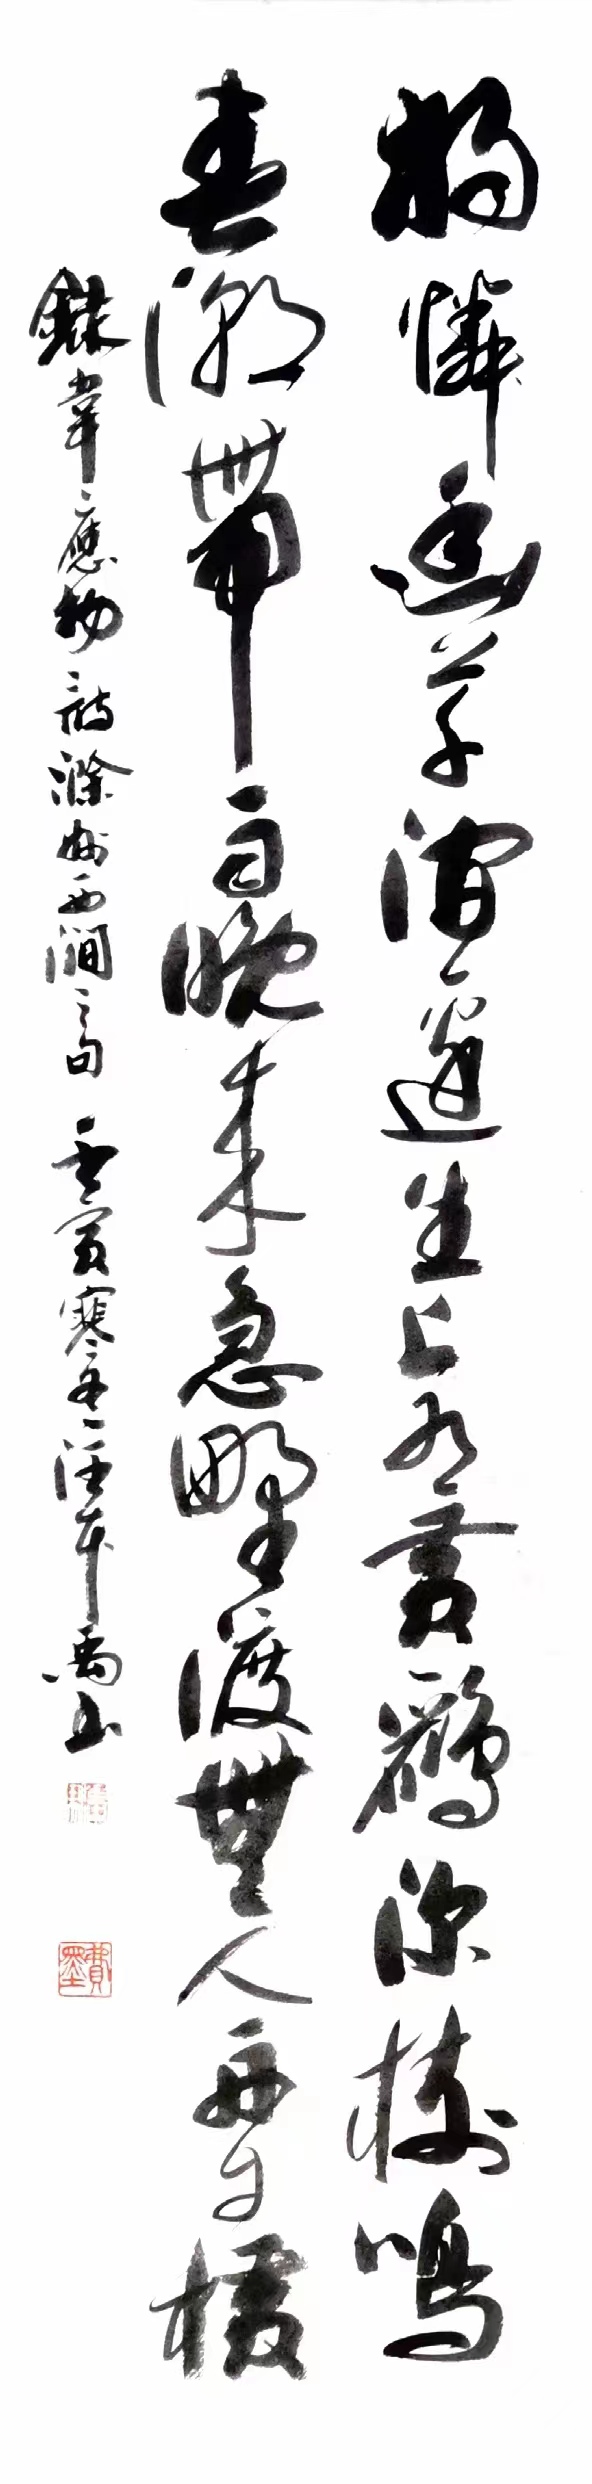 獨憐幽草澗邊生上有黃鸝深樹鳴
春潮帶雨晚来急野渡無人舟自橫
錄韋應物詩滁州西澗之句 壬寅寒冬 汪本禹
費墨